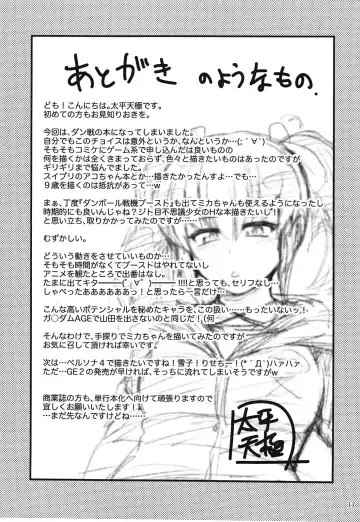 あとがき のようなもの.
ども！こんにちは。太平天極です。
初めての方もお見知りおきを。
今回は、ダン戦の本になってしまいました。
自分でもこのチョイスは意外というか、なんというか…(;´∀`)
そもそもコミケにゲーム系で申し込んだは良いものの
何を描くかは全くきまっておらず、色々と描きたいものはあったのですが
ギリギリまで悩んでました。
スイプリのアコちゃん本とか…描きたかったんすよ…でも…
９歳を描くのは抵抗があって…w
まぁ、丁度「ダンボール戦機ブースト」も出てミカちゃんも使えるようになったし
時期的にも良いんじゃね？ジト目不思議少女のH な本描きたいじ！
と思い立ち、取りかかってみたのですが……
むずかしい。
どういう動きをさせていいものか…
そもそも時間がなくてブーストはやれてないし
アニメを観たところで出番はなし。
たまに出てキター(ﾟ∀ﾟ)――!!!!と思っても、セリフなし…
しゃべったああああああっ！と思ったら一言だけ…
こんな高いポテンシャルを秘めたキャラを、この扱い……もったいないッ！
ガ◯ダムAGEで山田を出さないのと同じだ！(何
そんなわけで、手探りでミカちゃんを描いてみたのですが
お気に召して頂ければ幸いです。
次は…ペルソナ４で描きたいですね！雪子！りせちー！(*´Д`)ハァハァ
ただ…GE２の発売が早ければ、そっちに流れてしまいそうですがw
商業誌の方も、単行本化へ向けて頑張りますので
宜しくお願いいたします！
…まだ先なんですけどね……
太平
天極